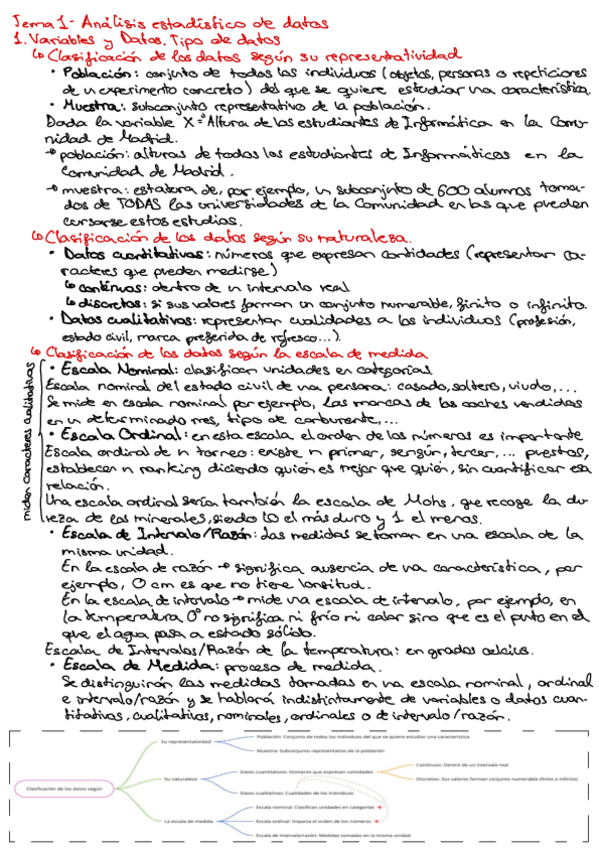 Tema 1 - Análisis estadístico de datos
1. Variables y Datos. Tipo de datos
↳ Clasificación de los datos según su representatividad
• Población: conjunto de todos los individuos (objetos, personas o repeticiones
de un experimento concreto) del que se quiere estudiar una característica.
• Muestra: subconjunto representativo de la población.
Dada la variable X = "Altura de los estudiantes de Informática en la Comu-
nidad de Madrid.
→ población: alturas de todos los estudiantes de Informáticos en la
Comunidad de Madrid.
→ muestra: estatura de, por ejemplo, un subconjunto de 600 alumnos toma-
dos de TODAS las universidades de la Comunidad en las que pueden
cursarse estos estudios.
↳ Clasificación de los datos según su naturaleza.
• Datos cuantitativos: números que expresan cantidades (representan ca-
racteres que pueden medirse)
↳ continuos: dentro de un intervalo real
↳ discretos: si sus valores forman un conjunto numerable, finito o infinito.
• Datos cualitativos: representan cualidades a los individuos (profesión,
estado civil, marca preferida de refresco...).
↳ Clasificación de los datos según la escala de medida
miden caracteres cualitativos
• Escala Nominal: clasifican unidades en categorías
Escala nominal del estado civil de una persona: casado, soltero, viudo,...
Se mide en escala nominal por ejemplo, las marcas de los coches vendidos
en un determinado mes, tipo de carburante,...
• Escala Ordinal: en esta escala el orden de los números es importante
Escala ordinal de un torneo: existe un primer, segundo, tercer, ... puestos,
establecen un ranking diciendo quién es mejor que quién, sin cuantificar esa
relación.
Una escala ordinal sería también la escala de Mohs, que recoge la du-
reza de los minerales, siendo 10 el más duro y 1 el menos.
• Escala de Intervalo/Razón: las medidas se toman en una escala de la
misma unidad.
En la escala de razón → significa ausencia de una característica, por
ejemplo, 0 cm es que no tiene longitud.
En la escala de intervalo → mide una escala de intervalo, por ejemplo, en
la temperatura 0º no significa ni frío ni calor sino que es el punto en el
que el agua pasa a estado sólido.
Escala de Intervalos/Razón de la temperatura: en grados celcius.
• Escala de Medida: proceso de medida.
Se distinguirán las medidas tomadas en una escala nominal, ordinal
e intervalo/razón y se hablará indistintamente de variables o datos cuan-
titativas, cualitativas, nominales, ordinales o de intervalo/razón.
Clasificación de los datos según
Su representatividad
Población: Conjunto de todos los individuos del que se quiere estudiar una característica
Muestra: Subconjunto representativo de la población
Su naturaleza
Datos cuantitativos: Números que expresan cantidades
Continuos: Dentro de un intervalo real
Discretos: Sus valores forman conjunto numerable (finito o infinito)
Datos cualitativos: Cualidades de los individuos
La escala de medida
Escala nominal: Clasifican unidades en categorías
Escala ordinal: Importa el orden de los números
Escala de intervalo/razón: Medidas tomadas en la misma unidad